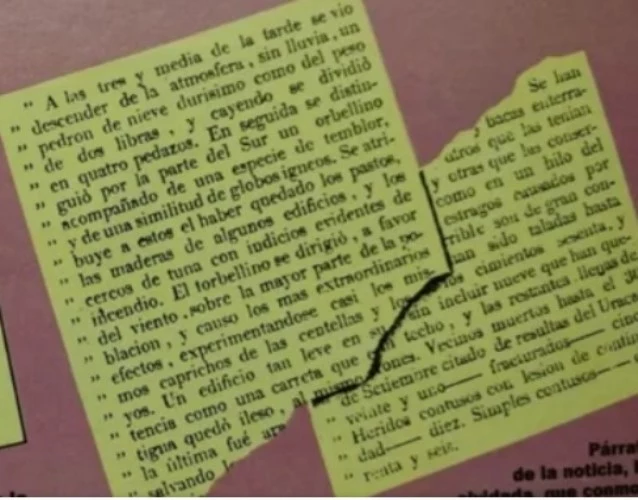 " A las tres y media de la tarde se vio
" descender de la atmosfera, sin lluvia, un
" pedron de nieve durisimo como del peso
" de dos libras, y cayendo se dividió
" en quatro pedazos. En seguida se distin-
" guió por la parte del Sur un orbellino
" acompañado de una especie de temblor,
" y de una similitud de globos igneos. Se atri-
" buye a estos el haber quedado los pastos,
" las maderas de algunos edificios, y los
" cercos de tuna con indicios evidentes de
" incendio. El torbellino se dirigió, a favor
" del viento, sobre la mayor parte de la po-
" blacion, y causo los mas extraordinarios
" efectos, experimentandose casi los mis-
" mos caprichos de las centellas y los
" yos. Un edificio tan leve en su
" tencia como una carreta que
" tigua quedó ileso, al mismo
" la última fué
" salvando
Se han
y bacas enterra-
otros que las tenian
y otras que las conser-
como en un hilo del
estragos causados por
rrible son de gran con-
han sido taladas hasta
los cimientos sesenta, y
sin incluir nueve que han que-
techo, y las restantes llenas de
rones. Vecinos muertos hasta el
de Setiembre citado de resultas del Urac
" veinte y uno— fracturados— cinc
" Heridos contusos con lesion de contin
" dad— diez. Simples contusos—
" renta y seis.
Párra
de la noticia,